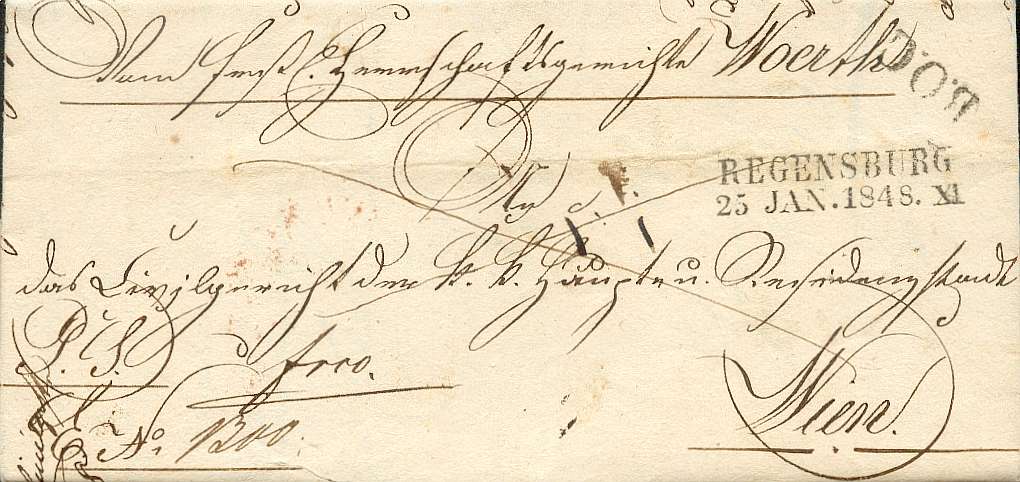 Vom fürstl. Herrschaftsgerichte Woerth
D.O.B.
An
REGENSBURG
25 JAN. 1848. XI
das Civilgericht der k. k. Haupt u. Residenzstadt
P. S.
frco.
Wien.
E. No. 1300.